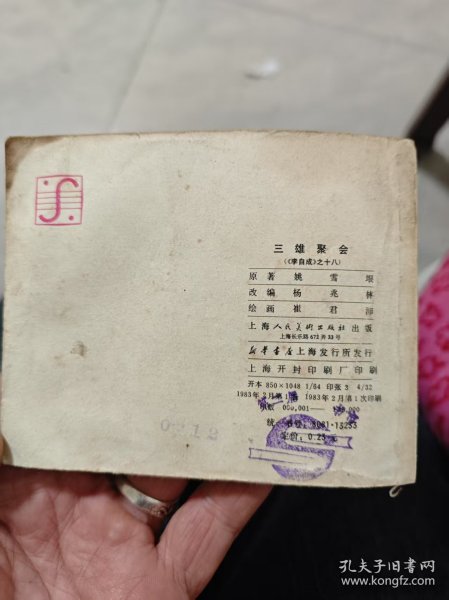 三雄聚会
(《李自成》之十八)
原著 姚雪垠
改编 杨兆林
绘画 崔君沛
上海人民美术出版社出版
上海长乐路672弄33号
新华书店上海发行所发行
上海开封印刷厂印刷
开本 850×1048 1/64 印张 3 4/32
1983年2月第1版 1983年2月第1次印刷
印数 000,001—
统一书号:8081·13253
定价:0.25元
0212
孔夫子旧书网
www.kongfz.com